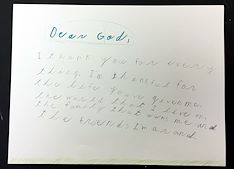 Dear God,
I thank you for every
thing. Im thankful for
the life you've given me,
the world that I live in,
the family that own me and
the friends Im around